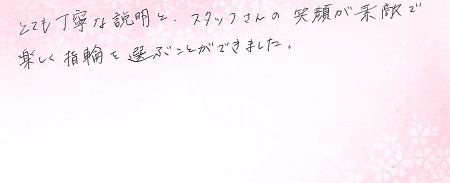 とても丁寧な説明と、スタッフさんの笑顔が素敵で
楽しく指輪を選ぶことができました。